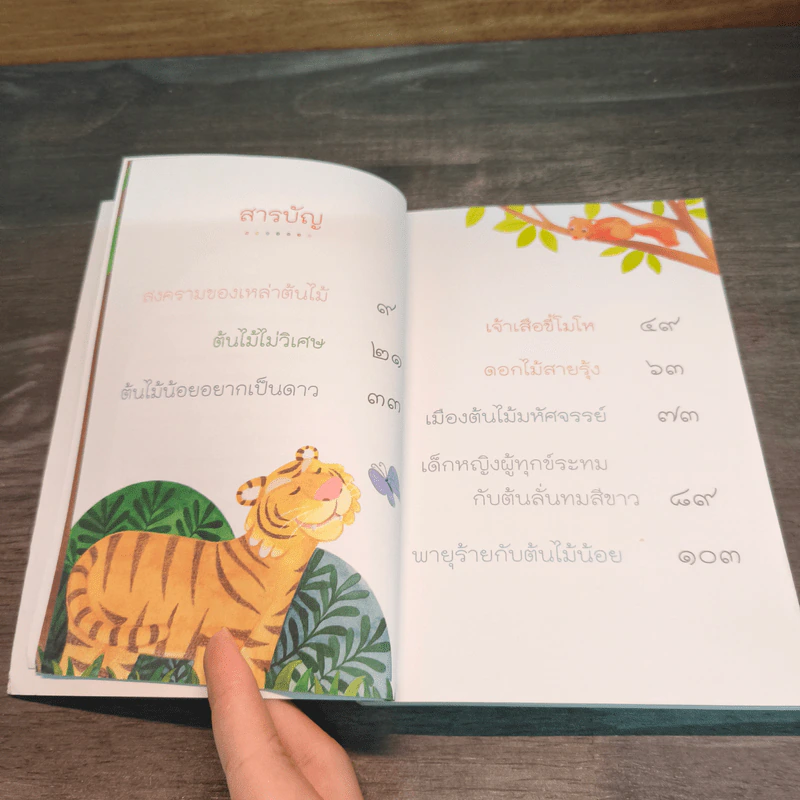 สารบัญ
สงครามของเหล่าต้นไม้ ๙
ต้นไม้ไม่วิเศษ ๒๑
ต้นไม้น้อยอยากเป็นดาว ๓๓
เจ้าเสือขี้โมโห ๔๙
ดอกไม้สายรุ้ง ๖๓
เมืองต้นไม้มหัศจรรย์ ๗๓
เด็กหญิงผู้ทุกข์ระทม
กับต้นลั่นทมสีขาว ๘๙
พายุร้ายกับต้นไม้น้อย ๑๐๓